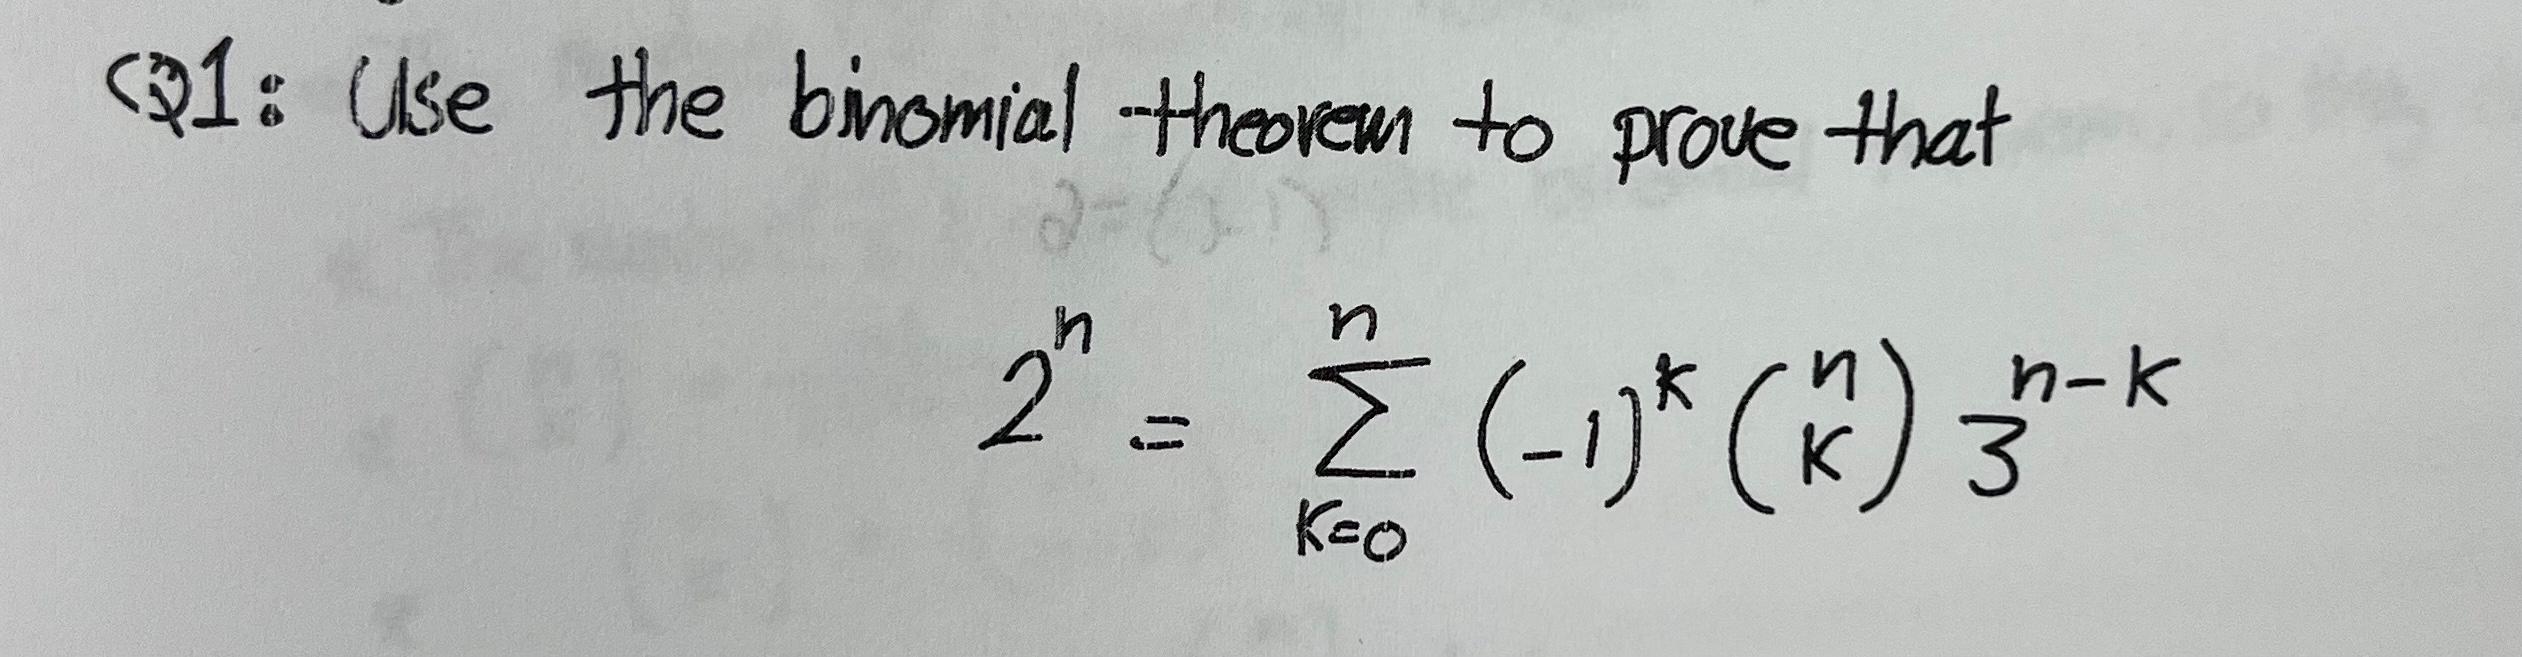 Q1: Use the binomial theorem to prove that
2^n = \sum_{k=0}^{n} (-1)^k \binom{n}{k} 3^{n-k}